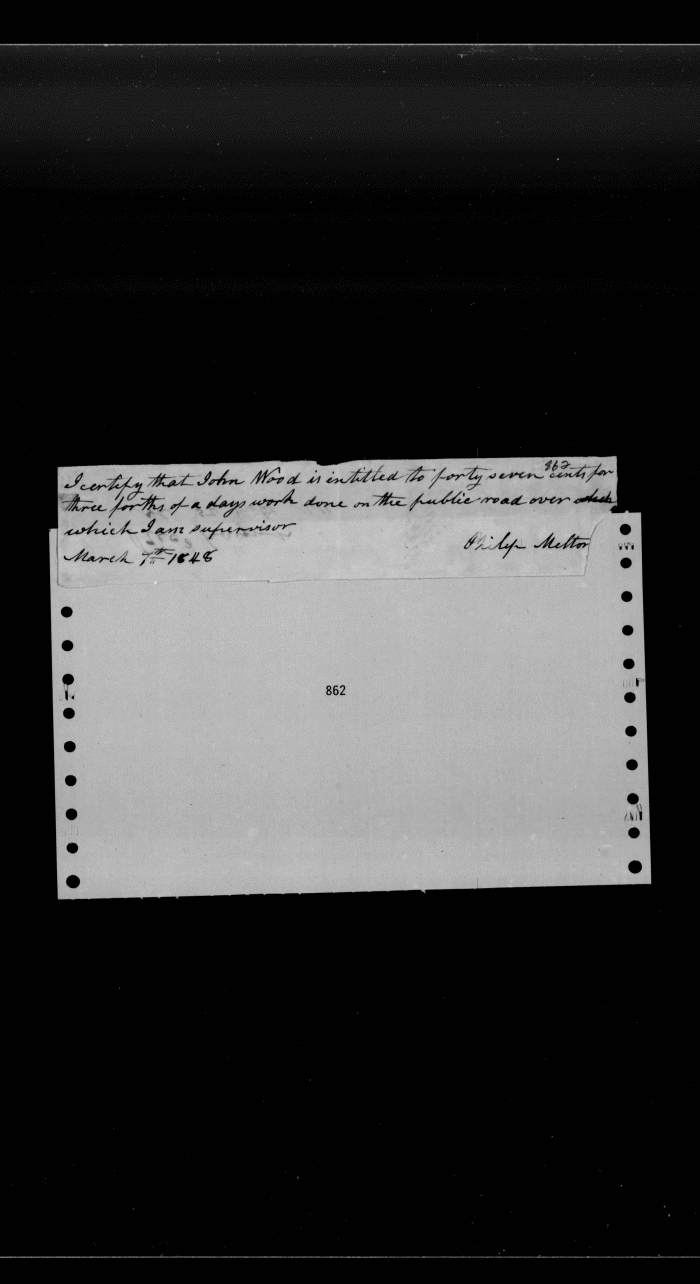 862
I certify that John Wood is intitled to forty seven cents for
three forths of a days work done on the public road over
which I am supervisor
Philip Melton
March 7th 1848
862